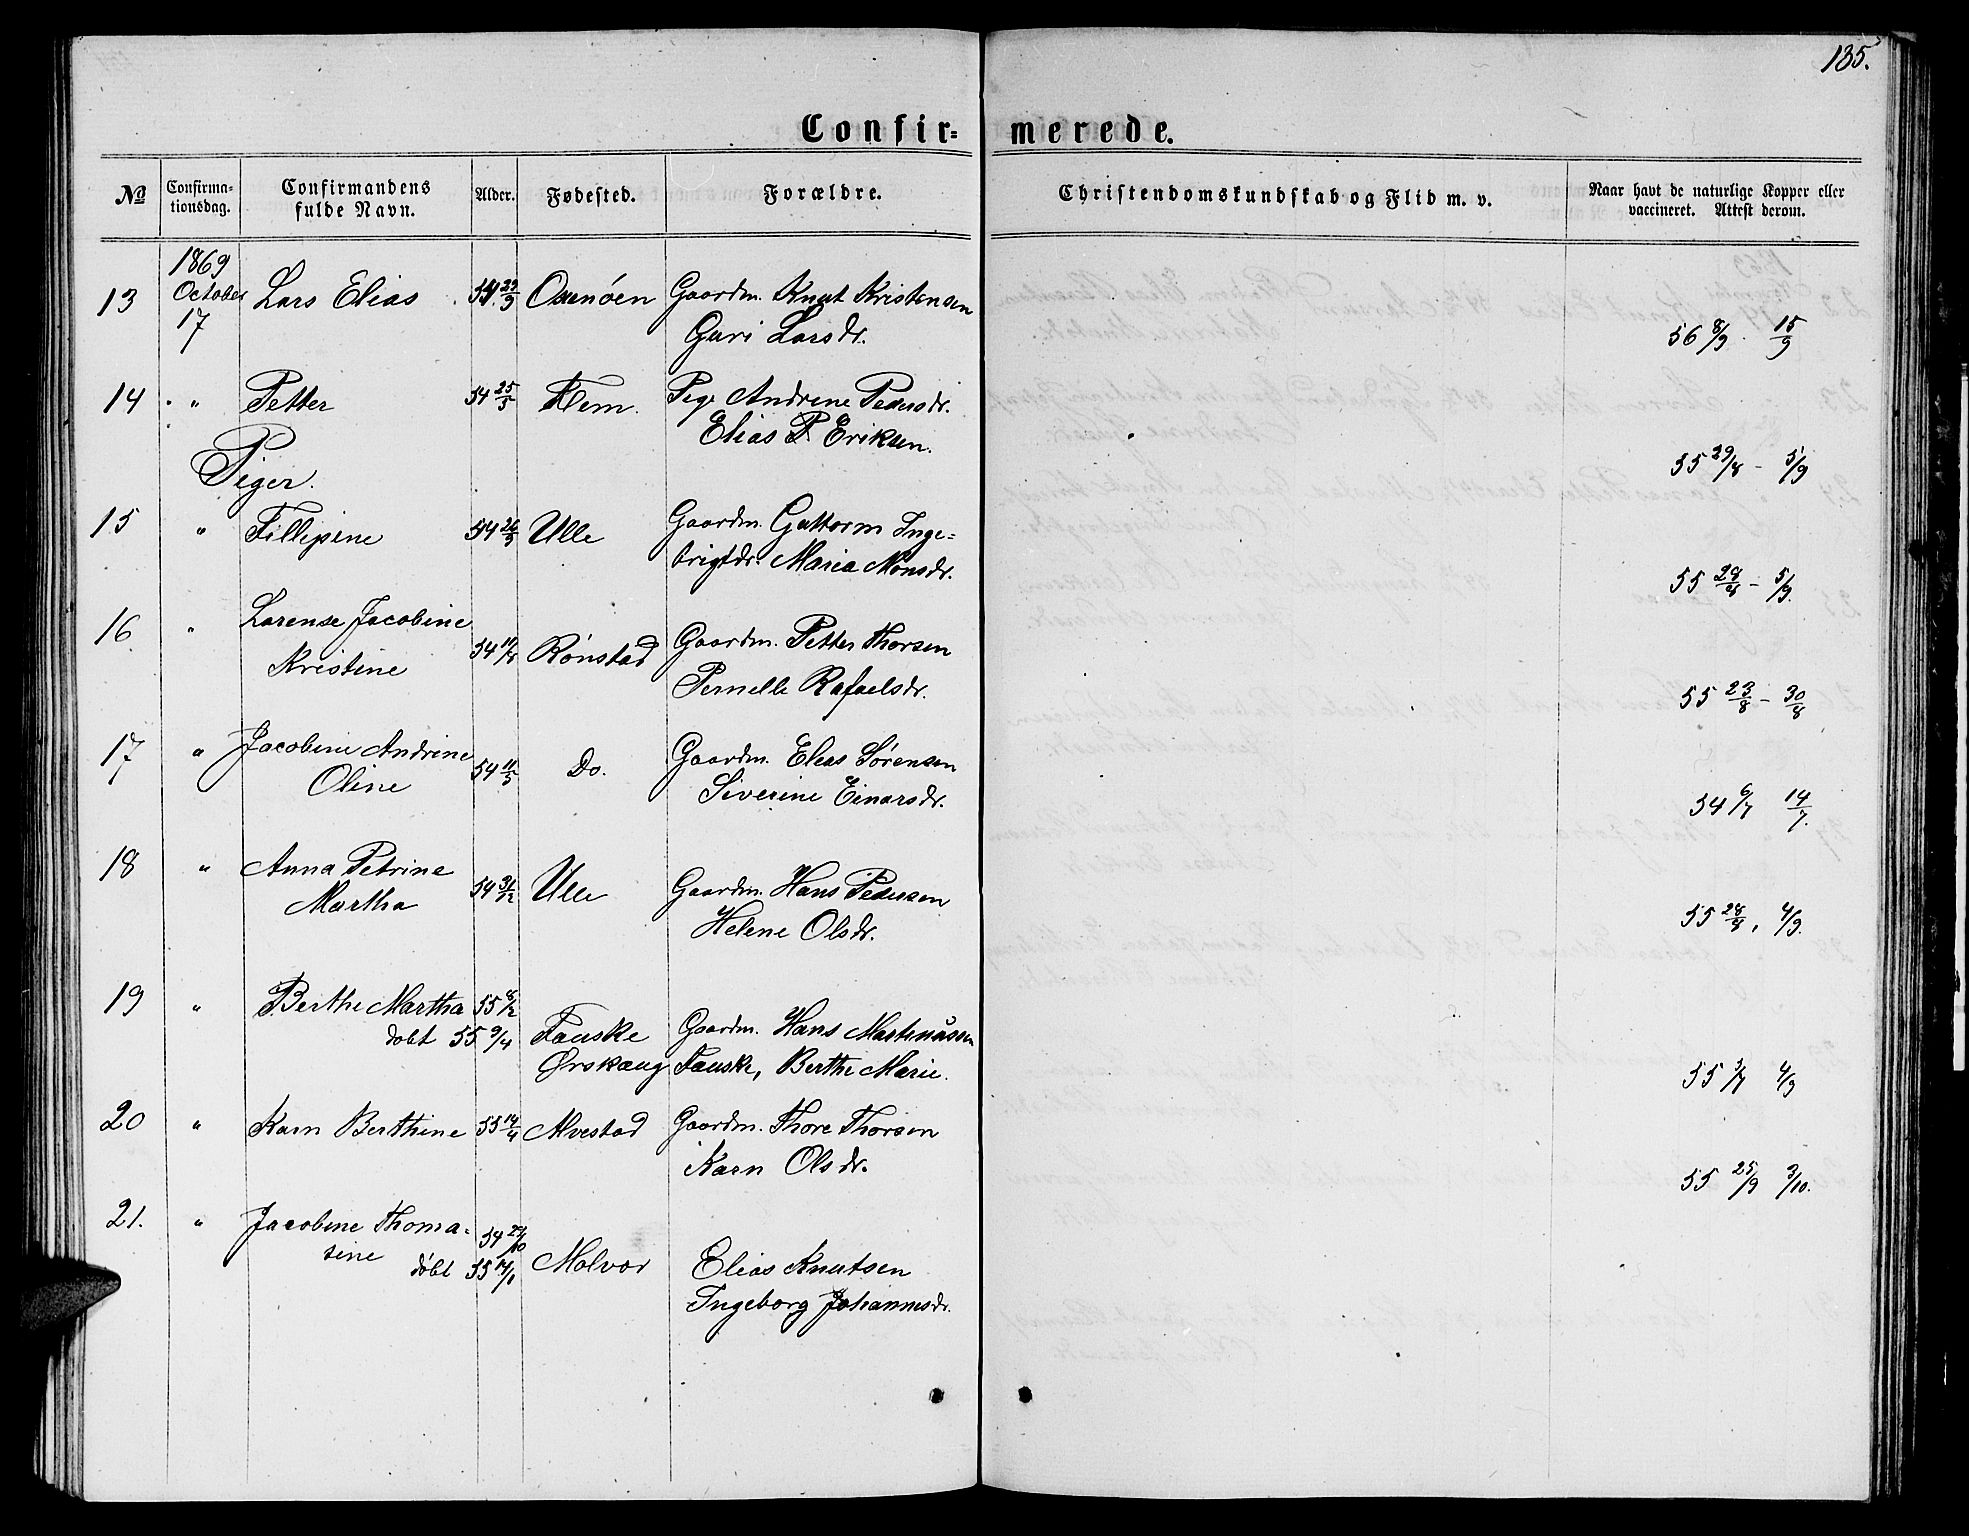 135.
Confir= merede.
№ Confirma-tionsdag. Confirmandens fulde Navn. Alder. Fødested. Forældre. Christendomskundskab og Flid m. v. Naar havt de naturlige Kopper eller vaccineret. Attest derom.
1869
13 October 17 Lars Elias 54 29/9 Oxenöen Gaardm. Knut Kristensen
Guri Larsdr. 56 8/9 . 15/9
14 " Petter 54 25/5 Hem. Pige Andrine Pedersdr.
Elias P. Eriksen. 55 29/8 - 5/9
Piger.
15 " Fillipine 54 26/5 Ulle Gaardm. Guttorm Inge=
brigtdr. Maria Monsdr. 55 28/8 - 5/9.
16 " Larense Jacobine
Kristine 54 11/8 Rönstad Gaardm. Petter Thorsen
Pernelle Rafaelsdr. 55 23/8 - 30/8
17 " Jacobine Andrine
Oline 54 11/5 Do. Gaardm. Elias Sørensen
Siverine Einarsdr. 54 6/7 14/7.
18 " Anna Petrine
Martha 54 31/12 Ulle Gaardm. Hans Pedersen
Helene Olsdr. 55 28/8, 4/9.
19 " Berthe Martha 55 8/2
döbt 55 9/4 Fauske Gaardm. Hans Martinussen
Ørskaug Fauske, Berthe Marie. 55 3/7 4/9
20 " Karn Berthine 55 14/4 Alvestad Gaardm. Thore Thorsen
Karn Olsdr. 55 25/9 3/10.
21. " Jacobine Thoma=
sine 54 29/10
döbt 55 14/1 Molvær Elias Knutsen
Ingeborg Johannesdr.